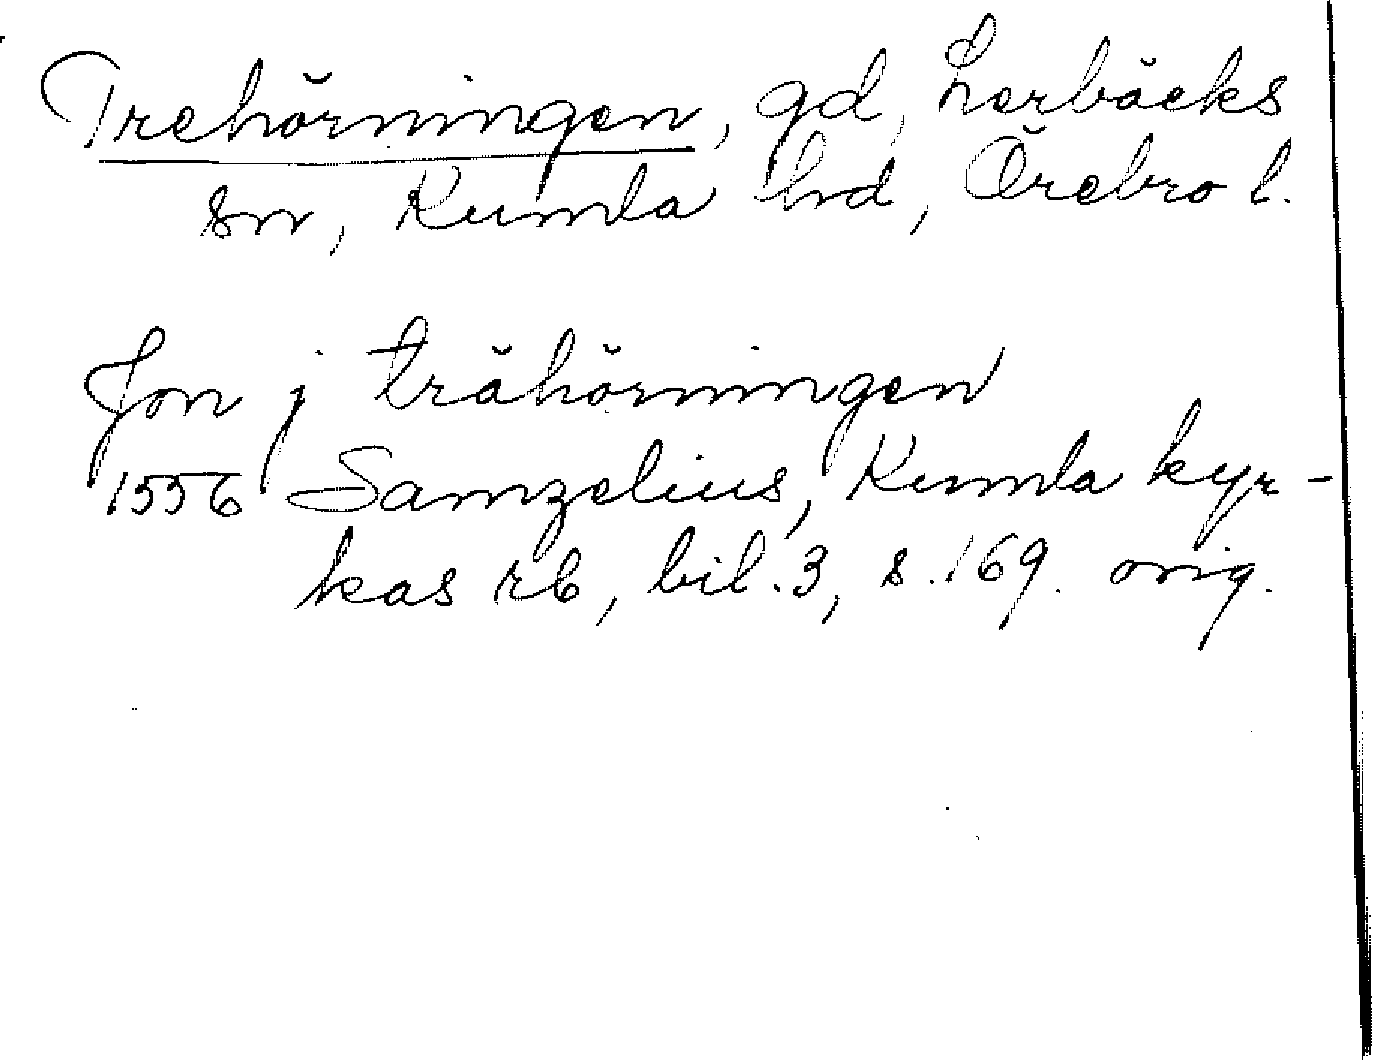 Trehörningen, gd, Lerbäcks
sn, Kumla hd, Örebro l.
Jon j trähörningen
1556 Samzelius, Kumla kyr-
kas rb, bil. 3, s. 169. orig.